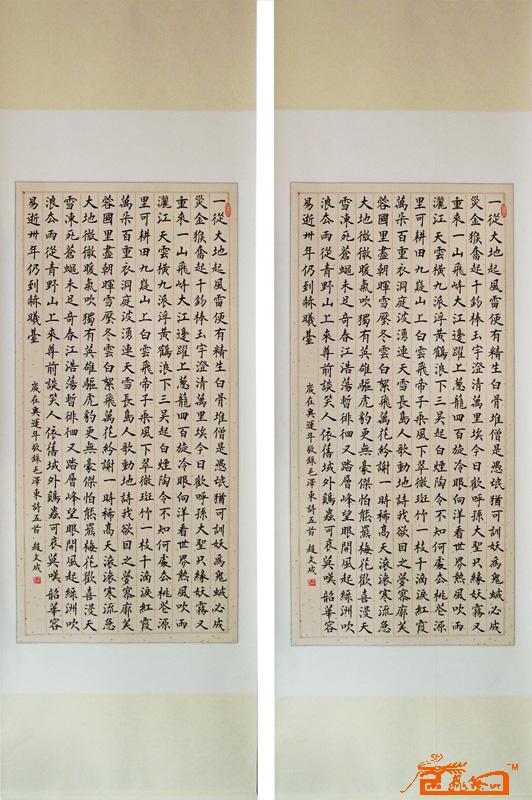 一從大地起風雷便有精生白骨堆僧是愚氓猶可訓妖為鬼蜮必成
災金猴奮起千鈞棒玉宇澄清萬里埃今日歡呼孫大聖只緣妖霧又
重來一山飛峙大江邊躍上蔥蘢四百旋冷眼向洋看世界熱風吹雨
灑江天雲橫九派浮黃鶴浪下三吳起白煙陶令不知何處厺桃花源
里可耕田九嶷山上白雲飛帝子乘風下翠微斑竹一枝千滴淚紅霞
萬朵百重衣洞庭波湧連天雪長島人歌動地詩我欲因之夢寥廓芙
蓉國里盡朝暉雪壓冬雲白絮飛萬花紛謝一時稀高天滾滾寒流急
大地微微暖氣吹獨有英雄驅虎豹更無豪傑怕熊羆梅花歡喜漫天
雪凍死蒼蠅未足奇春江浩蕩暫徘徊又踏層峰望眼開風起綠洲吹
浪厺雨從青野山上來尊前談笑人依舊域外鷄蟲可哀莫嘆韶華容
易逝卅年仍到赫曦臺
歲在奧運年敬錄毛澤東詩五首 趙文成
一從大地起風雷便有精生白骨堆僧是愚氓猶可訓妖為鬼蜮必成
災金猴奮起千鈞棒玉宇澄清萬里埃今日歡呼孫大聖只緣妖霧又
重來一山飛峙大江邊躍上蔥蘢四百旋冷眼向洋看世界熱風吹雨
灑江天雲橫九派浮黃鶴浪下三吳起白煙陶令不知何處厺桃花源
里可耕田九嶷山上白雲飛帝子乘風下翠微斑竹一枝千滴淚紅霞
萬朵百重衣洞庭波湧連天雪長島人歌動地詩我欲因之夢寥廓芙
蓉國里盡朝暉雪壓冬雲白絮飛萬花紛謝一時稀高天滾滾寒流急
大地微微暖氣吹獨有英雄驅虎豹更無豪傑怕熊羆梅花歡喜漫天
雪凍死蒼蠅未足奇春江浩蕩暫徘徊又踏層峰望眼開風起綠洲吹
浪厺雨從青野山上來尊前談笑人依舊域外鷄蟲可哀莫嘆韶華容
易逝卅年仍到赫曦臺
歲在奧運年敬錄毛澤東詩五首 趙文成
TM